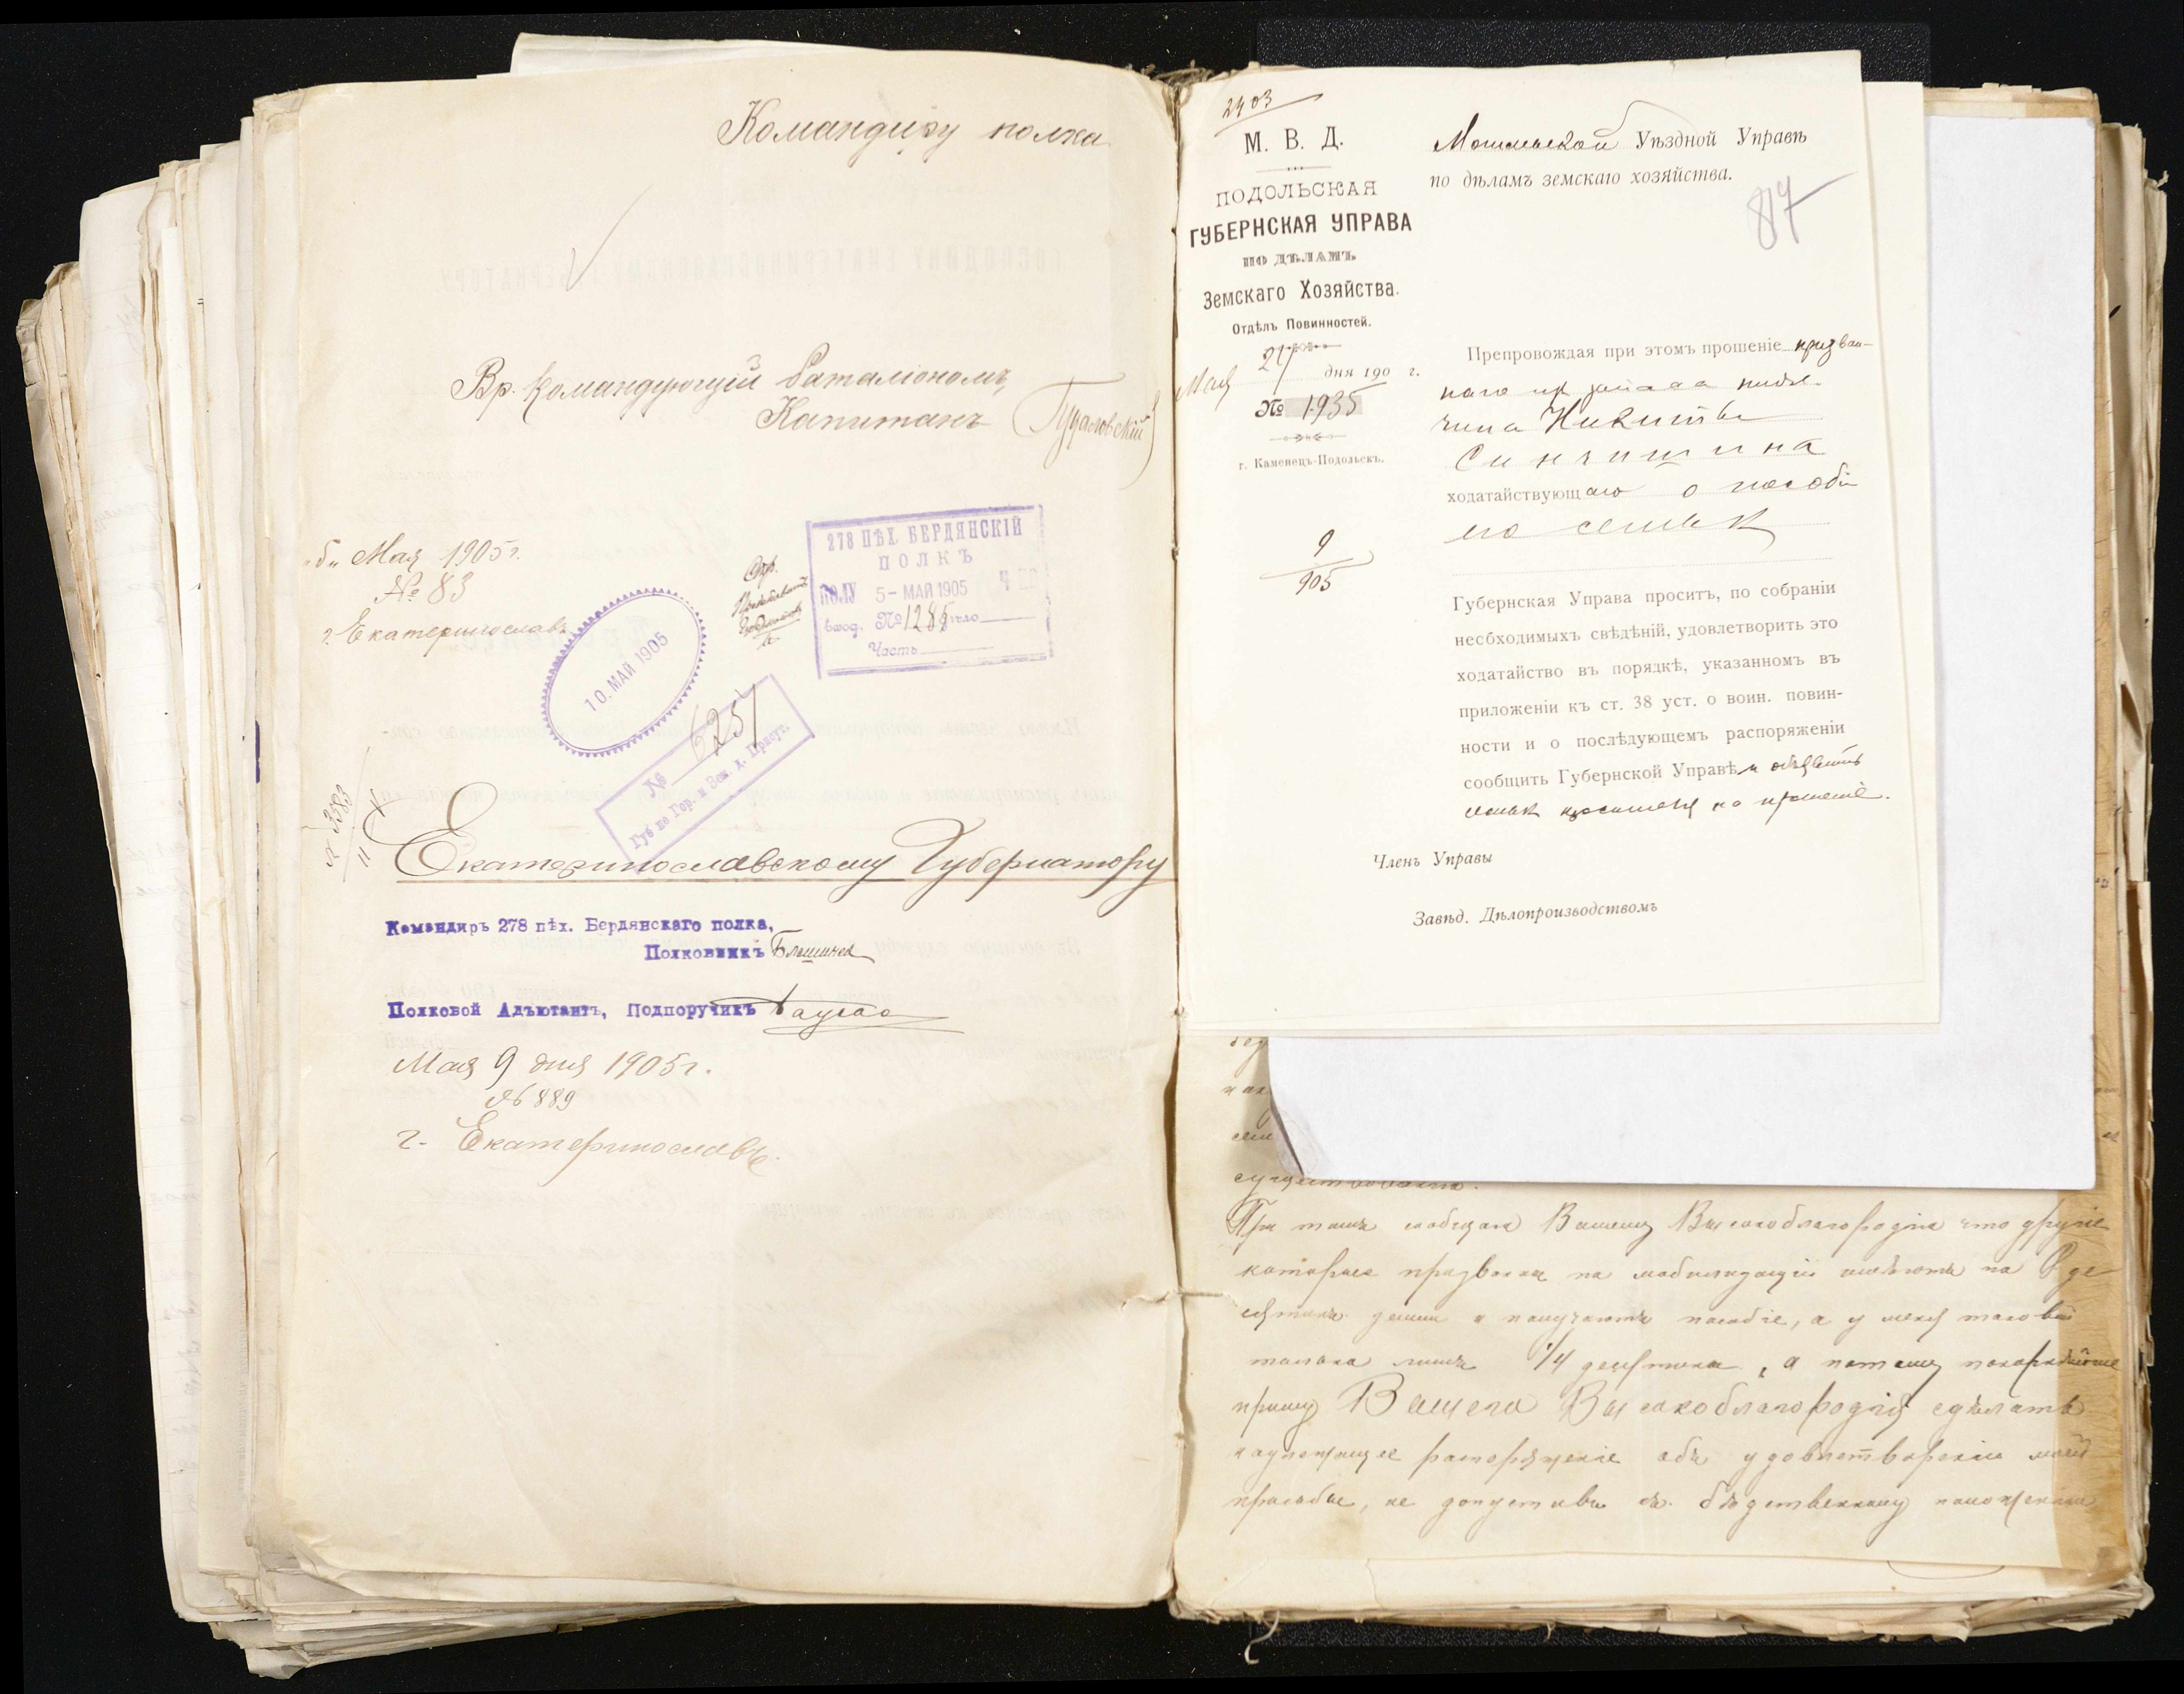 Командиру полка
Вр. Командующій баталіономъ,
Капитанъ
Мая 1905 г.
№ 83
г. Екатеринославъ
278 ПѢХ. БЕРДЯНСКІЙ
ПОЛКЪ
ПОЛУ 5 - МАЙ 1905
вход. №1285
Часть
10. МАЙ 1905
№ 6251
Губ по Гор. и Зем. д. Присут.
№ 3583
11
Екатеринославскому Губернатору
Командиръ 278 пѣх. Бердянскаго полка,
Полковникъ
Полковой Адъютантъ, Подпоручикъ
Мая 9 дня 1905 г.
№ 889
г. Екатеринославъ.
2403
М. В. Д.
ПОДОЛЬСКАЯ
ГУБЕРНСКАЯ УПРАВА
ПО ДѢЛАМЪ
Земскаго Хозяйства.
Отдѣлъ Повинностей.
Мая 24 дня 190 г.
№ 1935
г. Каменецъ-Подольскъ.
9
905
Уѣздной Управѣ
по дѣламъ земскаго хозяйства.
87
Препровождая при этомъ прошеніе призван-
наго из запаса ниж.
чина Никиты
Синчишина
ходатайствующаго о пособіи
его семьѣ
Губернская Управа проситъ, по собраніи
несбходимыхъ свѣдѣній, удовлетворить это
ходатайство въ порядкѣ, указанномъ въ
приложеніи къ ст. 38 уст. о воин. повин-
ности и о послѣдующемъ распоряженіи
сообщить Губернской Управѣ и объявить
семьѣ просителя на прошеніе.
Членъ Управы
Завѣд. Дѣлопроизводствомъ
существованія.
При томъ сообщаю Вашему Высокоблагородію что другіе
которые призваны на мобилизацію имѣютъ по 8 де
сятинъ земли и получаютъ пособіе, а у меня таковой
только лишь 1/4 десятины, а потому покорнѣйше
прошу Вашего Высокоблагородія сдѣлать
надлежащее распоряженіе объ удовлетвореніи моей
просьбы, не допустивъ къ бѣдственному положенію